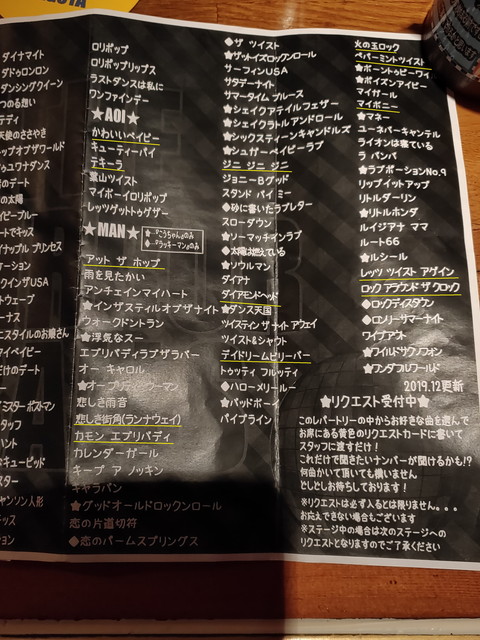 ダイナマイト
ダドゥロンロン
ダンシングクイーン
つのる想い
テディ
天使のささやき
トップオブザワールド
ドゥユワナダンス
のデート
の太陽
イビーブルー
ートでキッス
イナップル プリンセス
ケーション
クインザUSA
トウェーブ
ーナス
ニスタイルのお嬢さん
マイベイビー
だけのデート
ミスターポストマン
タッフ
ハント
キューピッド
スター
ャンソン人形
ッス
ション
ロリポップ
ロリポップリップス
ラストダンスは私に
ワンファインデー
★AOI★
かわいいベイビー
キューティーパイ
テキーラ
葉山ツイスト
マイボーイロリポップ
レッツゲットトゥゲザー
★MAN★
★…『こうちゃん』のみ
◆…『ラッキーマン』のみ
アット ザ ホップ
雨を見たかい
アンチェインマイハート
★インザスティルオブザナイト
ウォークドントラン
★浮気なスー
エブリバディラブザラバー
オー キャロル
★オー プリティウーマン
悲しき雨音
悲しき街角(ランナウェイ)
カモン エブリバディ
カレンダーガール
キープ ア ノッキン
キャラバン
★グッドオールドロックンロール
恋の片道切符
◆恋のパームスプリングス
◆ザ ツイスト
★ザッツイズロックンロール
サーフィンUSA
サタデーナイト
サマータイム ブルース
★シェイクアテイルフェザー
★シェイクラトルアンドロール
★シックスティーンキャンドルズ
★シュガーベイビーラブ
ジニ ジニ ジニ
ジョニーBグッド
スタンド バイ ミー
◆砂に書いたラブレター
スローダウン
★ソーマッチインラブ
◆太陽は燃えている
★ソウルマン
ダイアナ
ダイアモンドヘッド
★ダンス天国
ツイスティン ザ ナイト アウェイ
ツイスト&シャウト
デイドリームビリーバー
トゥッティ フルッティ
◆ハローメリールー
★バッドボーイ
パイプライン
火の玉ロック
ペパーミントツイスト
★ボーントゥビーワイ
★ポイズンアイビー
マイガール
マイボニー
★マネー
ユーネバーキャンテル
ライオンは寝ている
ラ バンバ
★ラブポーションNo.9
リップイットアップ
リトルダーリン
★リトルホンダ
ルイジアナ ママ
ルート66
★ルシール
レッツ ツイスト アゲイン
ロック アラウンド ザ クロック
◆ロックディスタウン
◆ロンリーサマーナイト
ワイプアウト
★ワイルドサクソフォン
★ワンダフルワールド
2019.12更新
★リクエスト受付中★
このレパートリーの中からお好きな曲を選んで
お席にある黄色のリクエストカードに書いて
スタッフに渡すだけ!
これだけで聞きたいナンバーが聞けるかも!?
何曲かいて頂いても構いません
どしどしお待ちしております!
※リクエストは必ず入るとは限りません。。。
お応えできない場合もございます
※ステージ中の場合は次のステージへの
リクエストとなりますのでご了承ください